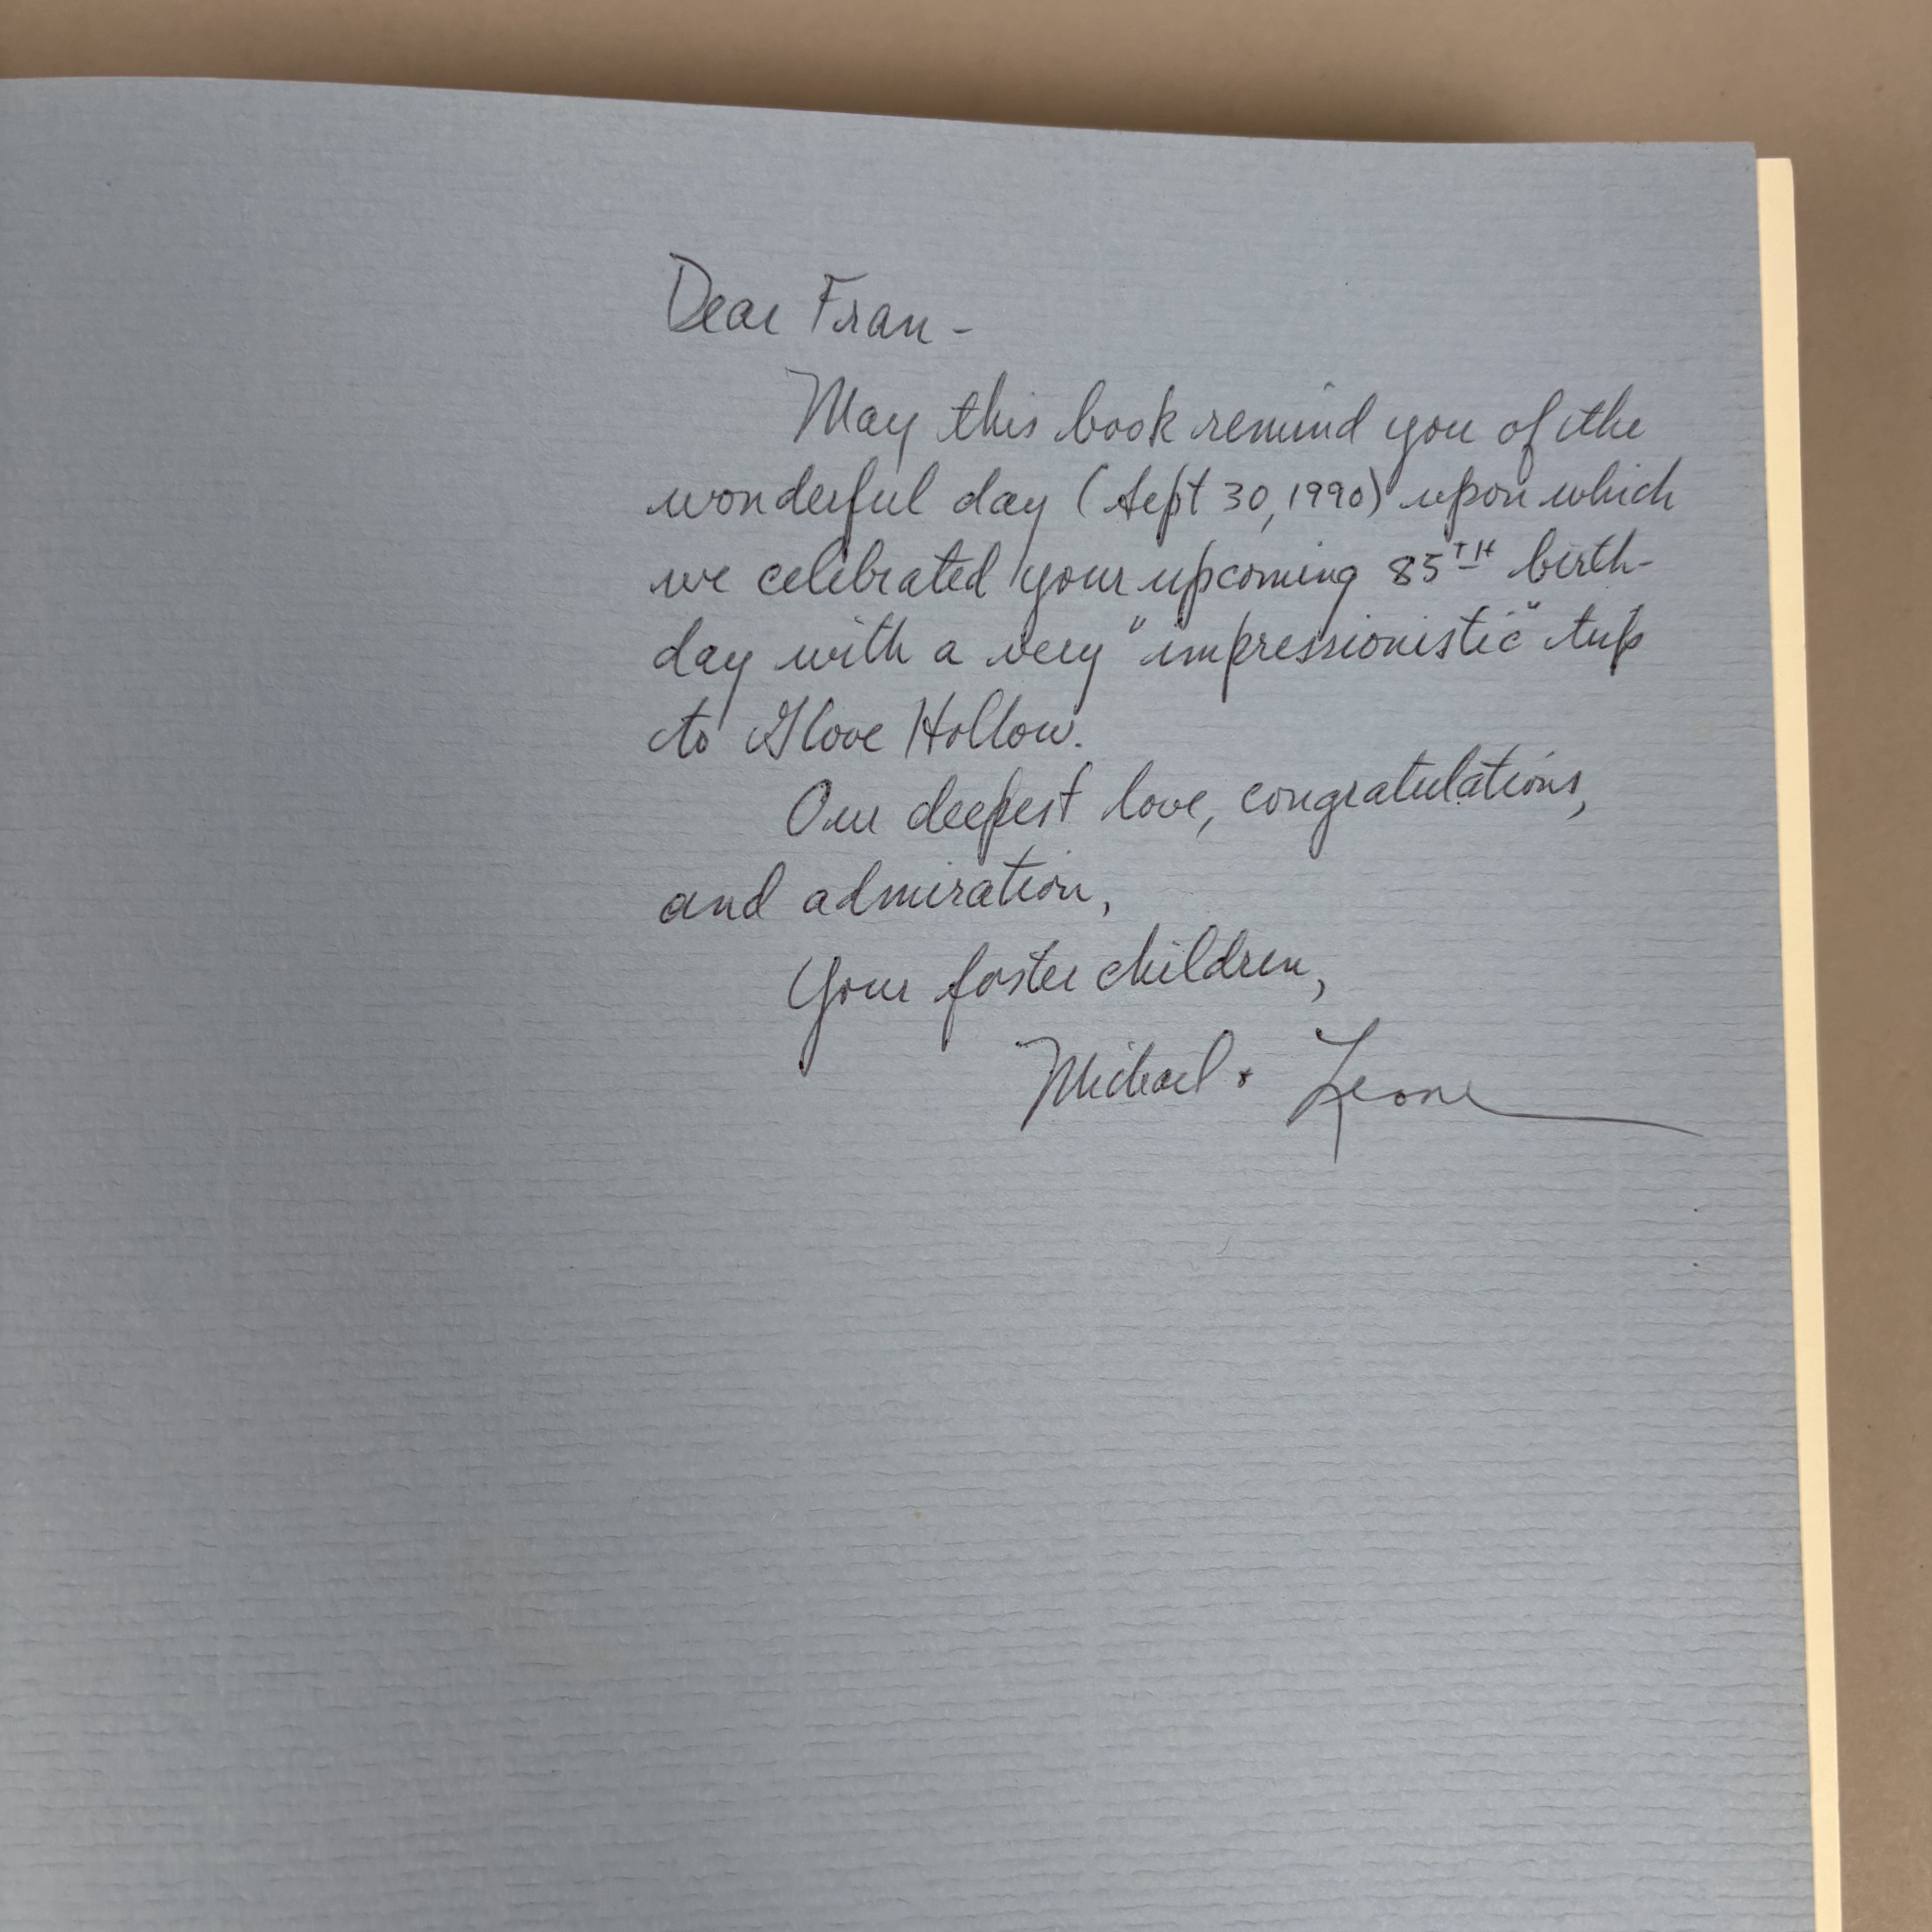 Dear Fran -
May this book remind you of the
wonderful day (Sept 30, 1990) upon which
we celebrated your upcoming 85TH birth-
day with a very "impressionistic" trip
to Glove Hollow.
Our deepest love, congratulations,
and admiration,
Your foster children,
Michael + Leone